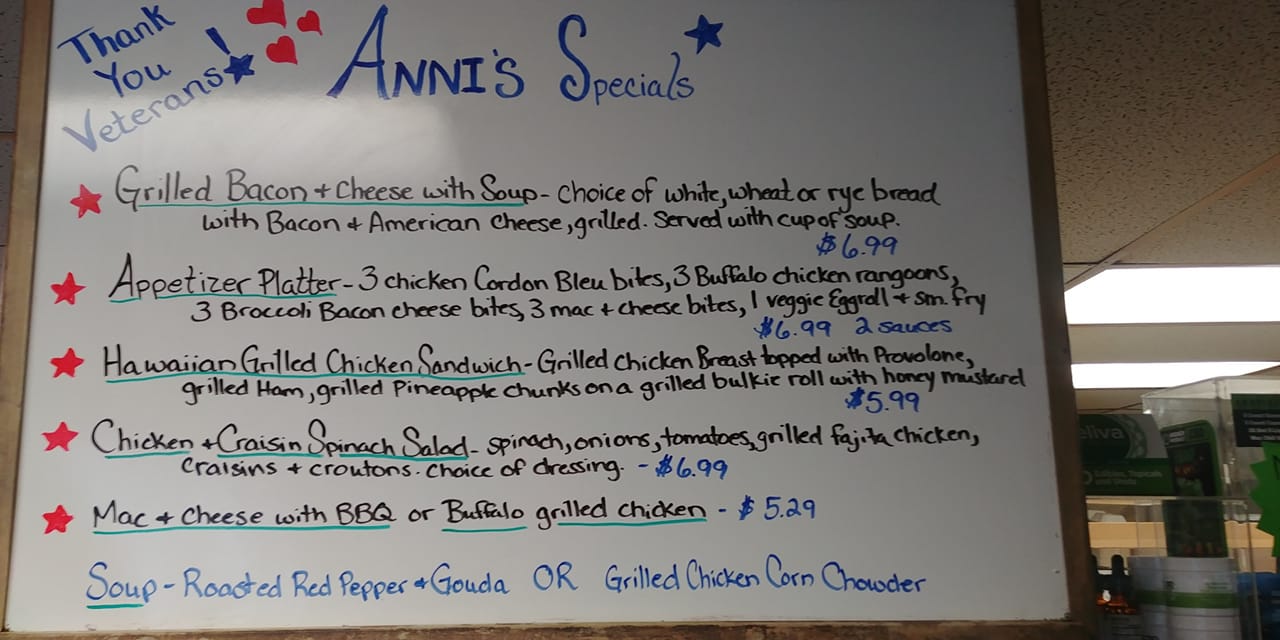 Thank
You
Veterans!
ANNI'S Specials
Grilled Bacon + Cheese with Soup - choice of white, wheat or rye bread
with Bacon + American cheese, grilled. Served with cup of soup.
$6.99
Appetizer Platter - 3 chicken Cordon Bleu bites, 3 Buffalo chicken rangoons,
3 Broccoli Bacon cheese bites, 3 mac + cheese bites, 1 veggie Eggroll + sm. fry
$6.99 2 sauces
Hawaiian Grilled Chicken Sandwich - Grilled Chicken Breast topped with Provolone,
grilled Ham, grilled Pineapple chunks on a grilled bulkie roll with honey mustard
$5.99
Chicken + Craisin Spinach Salad - spinach, onions, tomatoes, grilled fajita chicken,
craisins + croutons. choice of dressing. - $6.99
Mac + Cheese with BBQ or Buffalo grilled chicken - $5.29
Soup - Roasted Red Pepper + Gouda OR Grilled Chicken Corn Chowder
eliva